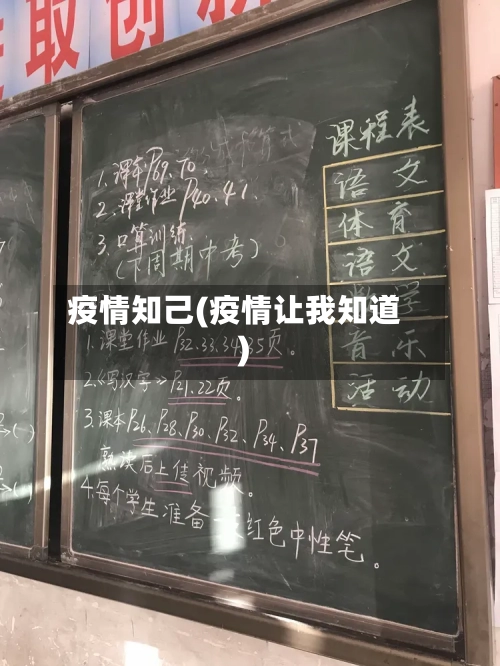 取创新
课程表
语文
体育
语文
数学
音乐
活动
1.课本P69、70、
2.课堂作业P40、41、
3.口算训练
(下周期中考)
疫情知己(疫情让我知道
)
1.课堂作业P32.33.34.35页。
2.《写汉字》P21、22页。
3.课本P26、P28、P30、P32、P34、P37
熟读后上传视频。
4.每个学生准备一支红色中性笔。